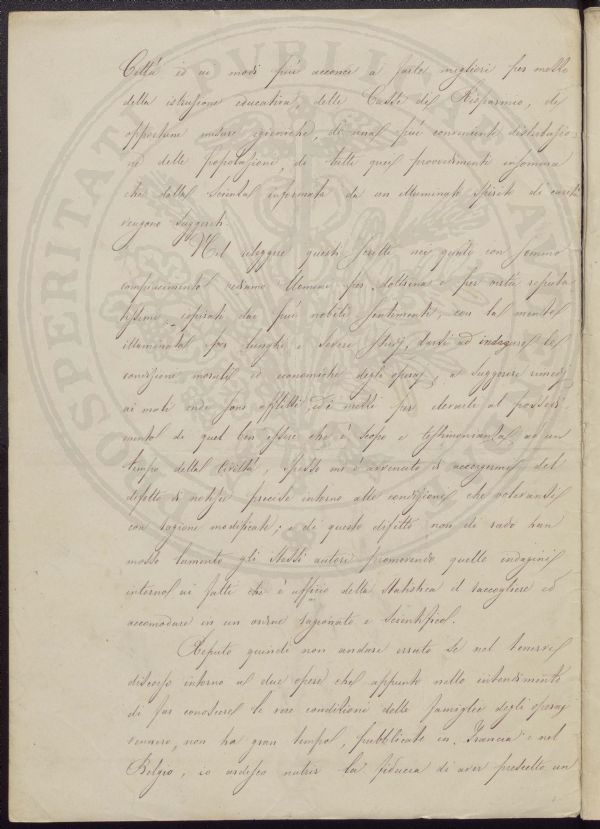 Città ed ai modi più acconci a farle migliori per mezzo
della istruzione educativa, delle Casse di Risparmio, di
opportune misure igieniche, di una più conveniente distribuzio-
ne delle popolazioni, di tutti quei provvedimenti insomma
che dalla scienza informata da un illuminato spirito di carità
vengono suggeriti.
Nel rileggere questi scritti nei quali con sommo
compiacimento vediamo Uomini per dottrina e per virtù reputa-
tissimi, ispirati dai più nobili sentimenti, con la mente
illuminata per lunghi e severi studj, darsi ad indagare le
condizioni morali ed economiche degli operaj, a suggerire rimedj
ai mali onde sono afflitti ed i mezzi per elevarli al possedi-
mento di quel ben essere che è scopo e testimonianza ad un
tempo della Civiltà, spesso mi è avvenuto di accorgermi del
difetto di notizie precise intorno alle condizioni che volevansi
con ragione modificate; e di questo difetto non di rado han
mosso lamento gli stessi autori promovendo quelle indagini
intorno ai fatti che è ufficio della Statistica il raccogliere ed
accomodare in un ordine ragionato e scientifico.
Reputo quindi non andare errato se nel tenervi
discorso intorno a due opere che appunto nello intendimento
di far conoscere le vere condizioni delle famiglie degli operaj
vennero, non ha gran tempo, pubblicate in Francia e nel
Belgio, io ardisco nutrir la fiducia di aver prescelto un